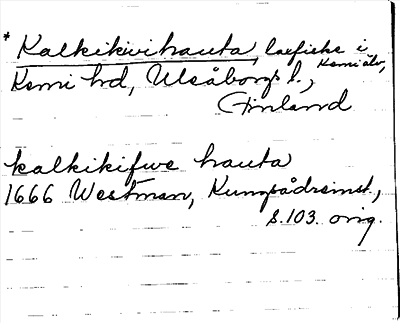 * Kalkikivihauta, laxfiske i
Kemi älv,
Kemi hrd, Uleåborgs l.,
Finland
kalkikifwe hauta
1666 Westman, Kungsådreinst.,
s. 103. orig.